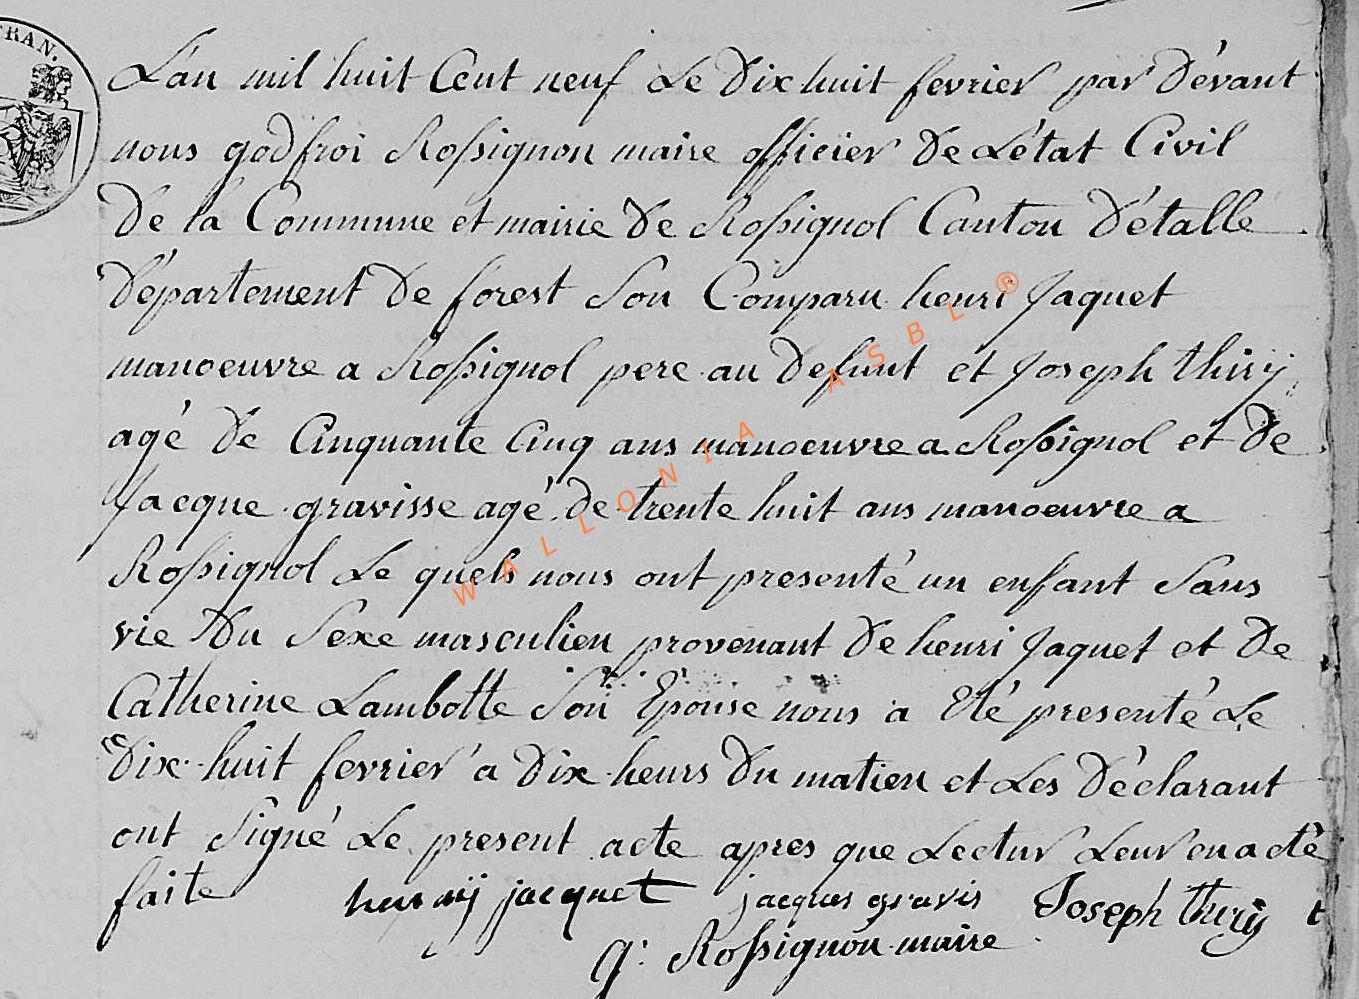 FRAN.
L'an mil huit Cent neuf Le Dix huit fevrier par Dévant
nous godfroi Rossignon maire officier De L'état Civil
De la Commune et mairie De Rossignol Canton D'étalle
Département De forest Son Comparu henri Jaquet
manoeuvre a Rossignol pere au Defunt et Joseph thiry
agé De Cinquante Cinq ans manoeuvre a Rossignol et De
Jacque gravisse agé De trente huit ans manoeuvre a
Rossignol Le quels nous ont presenté un enfant Sans
vie Du Sexe masculien provenant De henri Jaquet et De
Catherine Lambotte Son Epouse nous a Eté presenté Le
Dix huit fevrier a Dix heurs Du matien et Les Déclarant
ont Signé Le present acte apres que Lectur Leur en a etè
faite henry jacquet jacques gravis Joseph thiry
g: Rossignon maire
WALLONIA ASBL ®